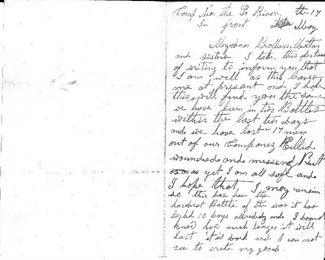 Camp Near the Po River, the 17
In front May
My dear Brothers Mother
and sisters I take this
of writing to inform you that
I am well as this leaves
me at present and I hope
this will find you the same
we have been in two Battles
within the last ten days
and we have lost 17 men
out of our Company Killed
wounded and missend But
as yet I am all safe and
I hope that I may remain
so this has been the
hardest Battle of the war it has
10 days already and I
know how much longer it will
last it is and I can not
see to write any good